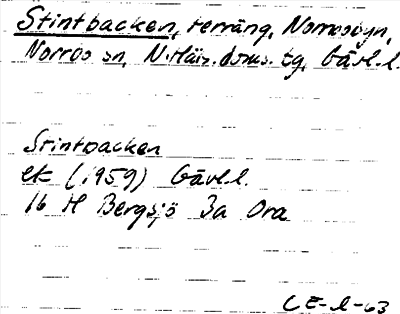 Stintbacken, terräng, Norrosbyn,
Norrbo sn, N. Häls. doms. tg, Gävl.l.
Stintbacken
ek (1959) Gävl.l.
16 H Bergsjö 3a Ora
CE-l-63